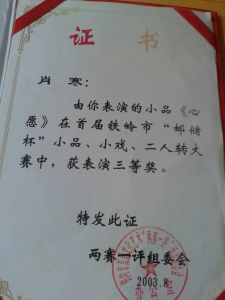 证 书
肖寒：
由你表演的小品《心
愿》在首届铁岭市“邮储
杯”小品、小戏、二人转大
赛中，获表演三等奖。
特发此证
两赛一评组委会
2003.8
办公室